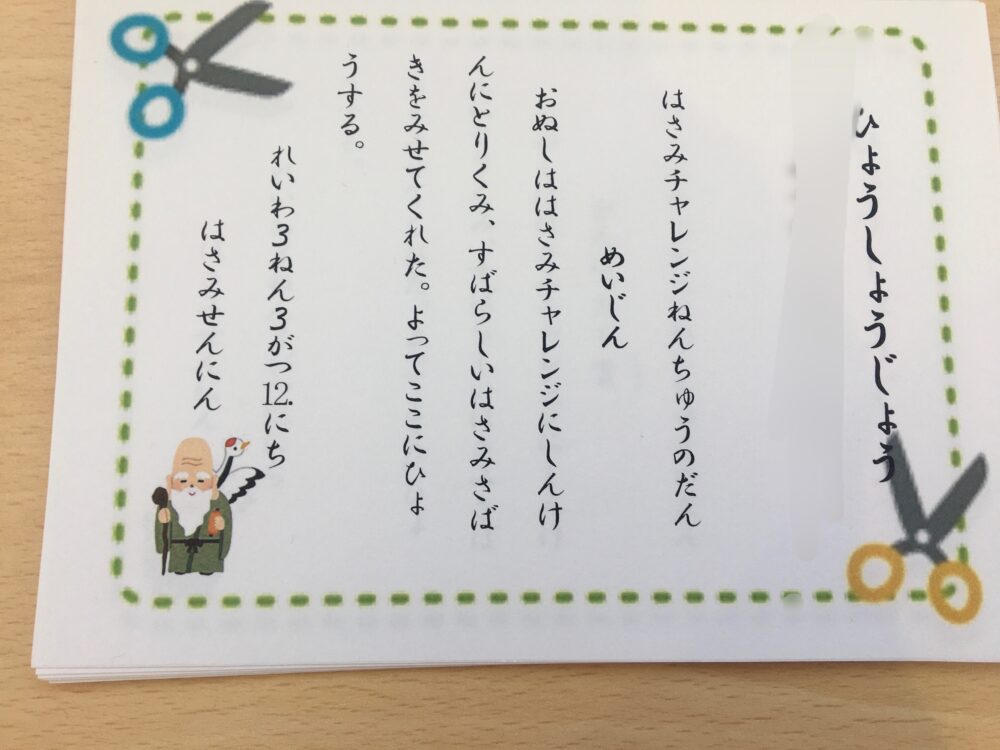 ひょうしょうじょう
はさみチャレンジねんちゅうのだん
めいじん
おぬしははさみチャレンジにしんけ
んにとりくみ、すばらしいはさみさば
きをみせてくれた。よってここにひょ
うする。
れいわ3ねん3がつ12.にち
はさみせんにん